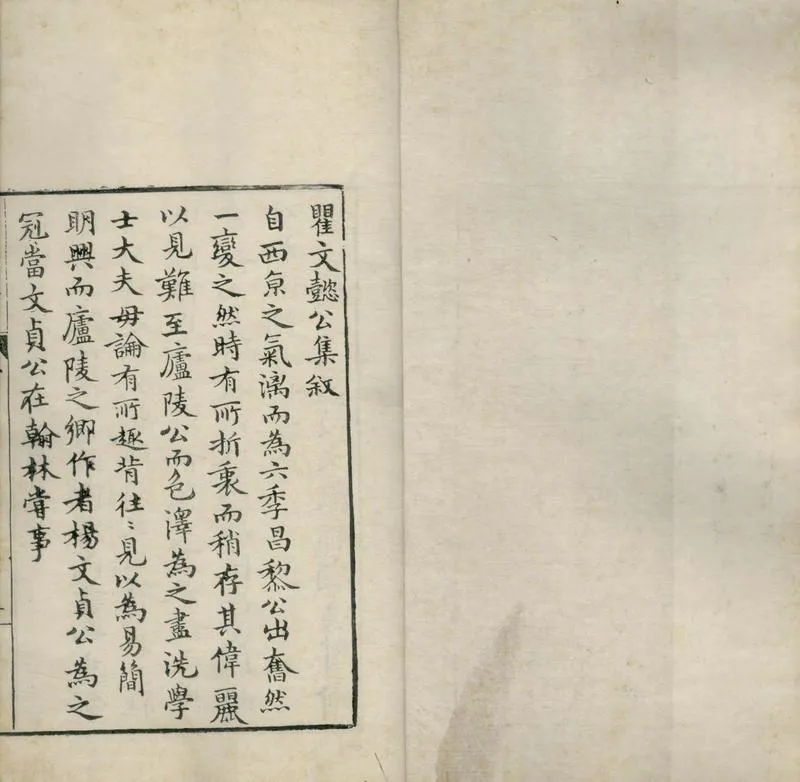 瞿文懿公集敘
自西京之氣漓而為六季昌黎公出奮然
一變之然時有所折衷而稍存其偉麗
以見難至廬陵公而色澤為之盡洗學
士大夫毋論有所趣背往〻見以為易簡
明興而廬陵之鄉作者楊文貞公為之
冠當文貞公在翰林嘗事